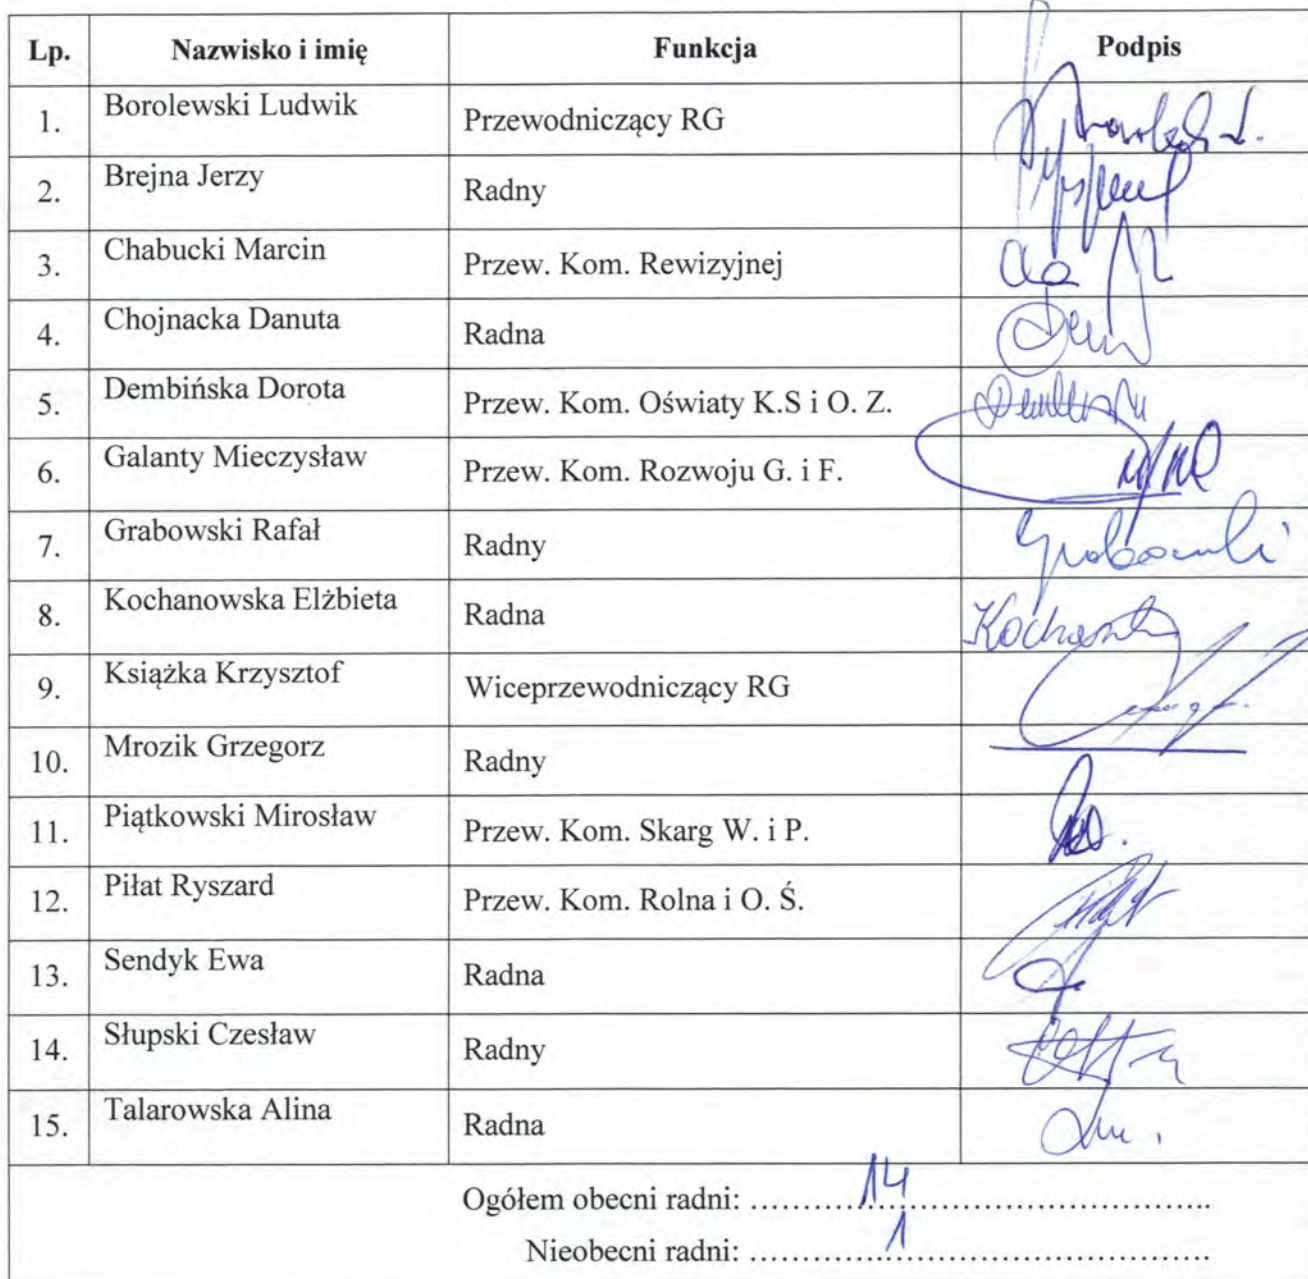 Lp. Nazwisko i imię Funkcja Podpis
1. Borolewski Ludwik Przewodniczący RG
2. Brejna Jerzy Radny
3. Chabucki Marcin Przew. Kom. Rewizyjnej
4. Chojnacka Danuta Radna
5. Dembińska Dorota Przew. Kom. Oświaty K.S i O. Z.
6. Galanty Mieczysław Przew. Kom. Rozwoju G. i F.
7. Grabowski Rafał Radny Grabowski
8. Kochanowska Elżbieta Radna
9. Książka Krzysztof Wiceprzewodniczący RG
10. Mrozik Grzegorz Radny
11. Piątkowski Mirosław Przew. Kom. Skarg W. i P.
12. Piłat Ryszard Przew. Kom. Rolna i O. Ś.
13. Sendyk Ewa Radna
14. Słupski Czesław Radny
15. Talarowska Alina Radna
Ogółem obecni radni: 14
Nieobecni radni: 1